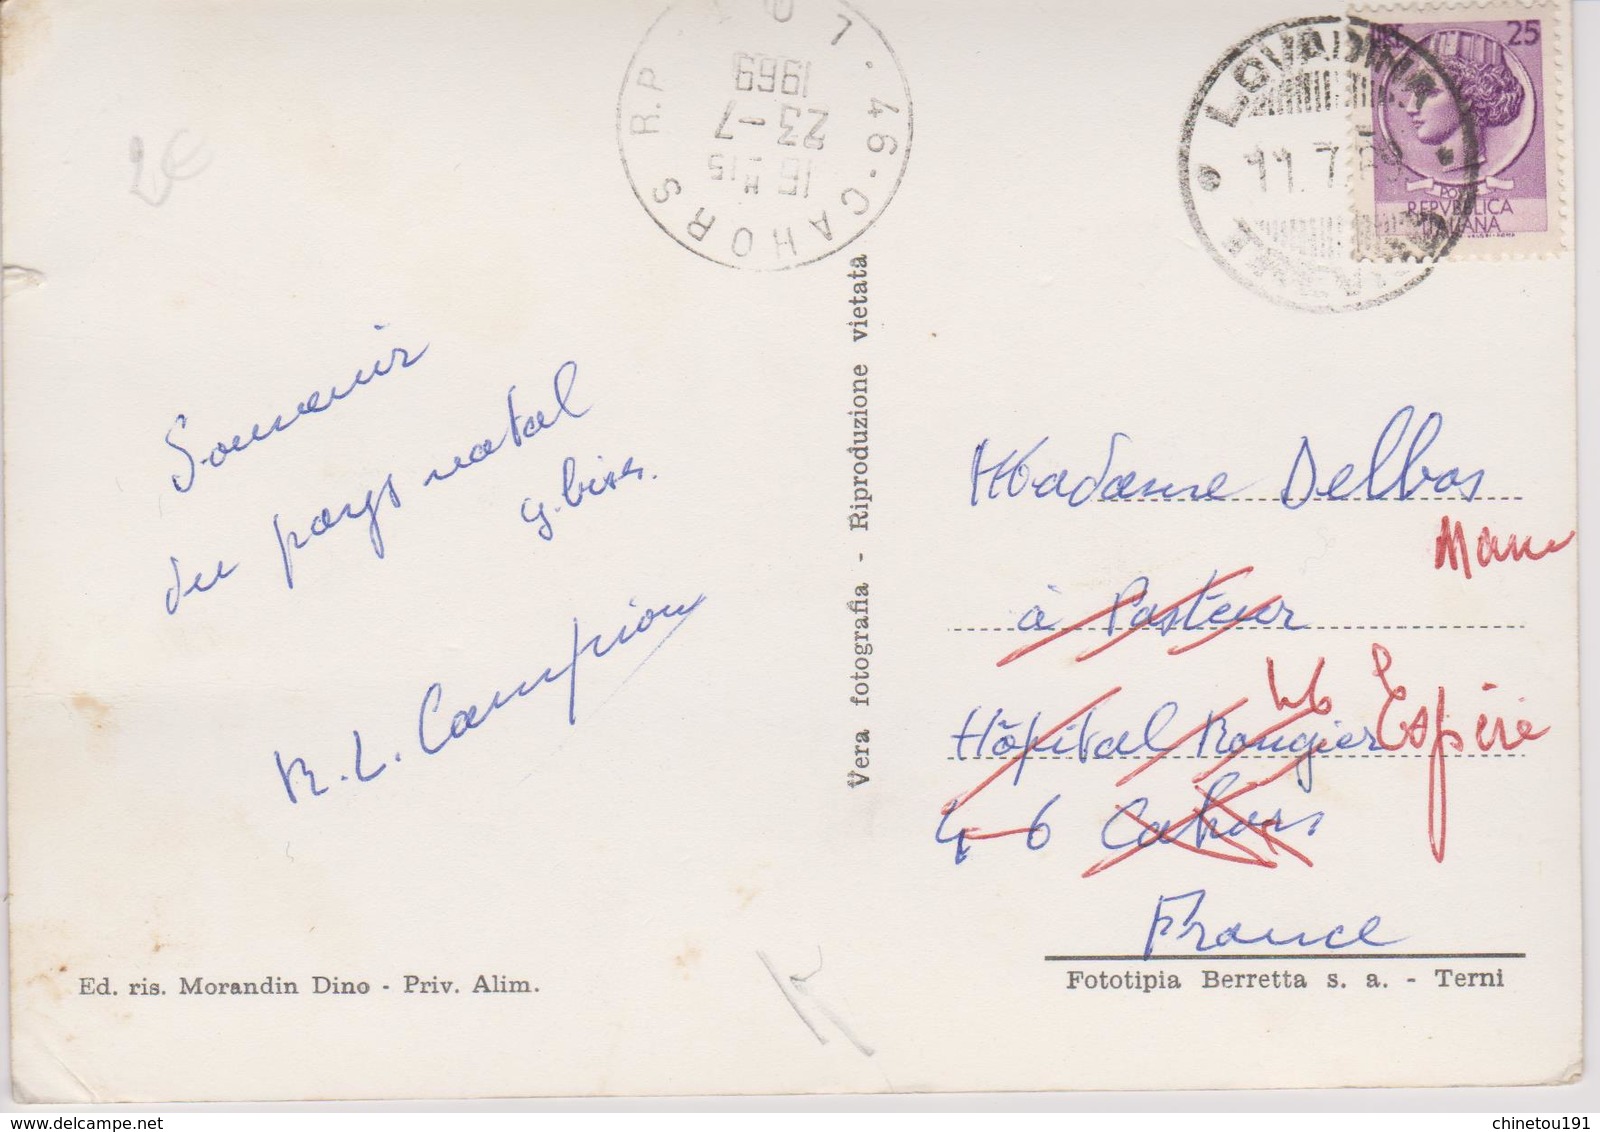 2€
L O T - 46 - CAHORS R.P
16 H 15
23 -7
1969
LOVADINA
11.7.69
LIRE 25
POSTE
REPVBBLICA
ITALIANA
Souvenir
du pays natal
g. bises.
R. L. Campion
Vera fotografia - Riproduzione vietata
Madame Delbos
à Pasteur
Hôpital Rougier
46 Cahors
46 Espère
France
Ed. ris. Morandin Dino - Priv. Alim.
Fototipia Berretta s. a. - Terni
chinetou191